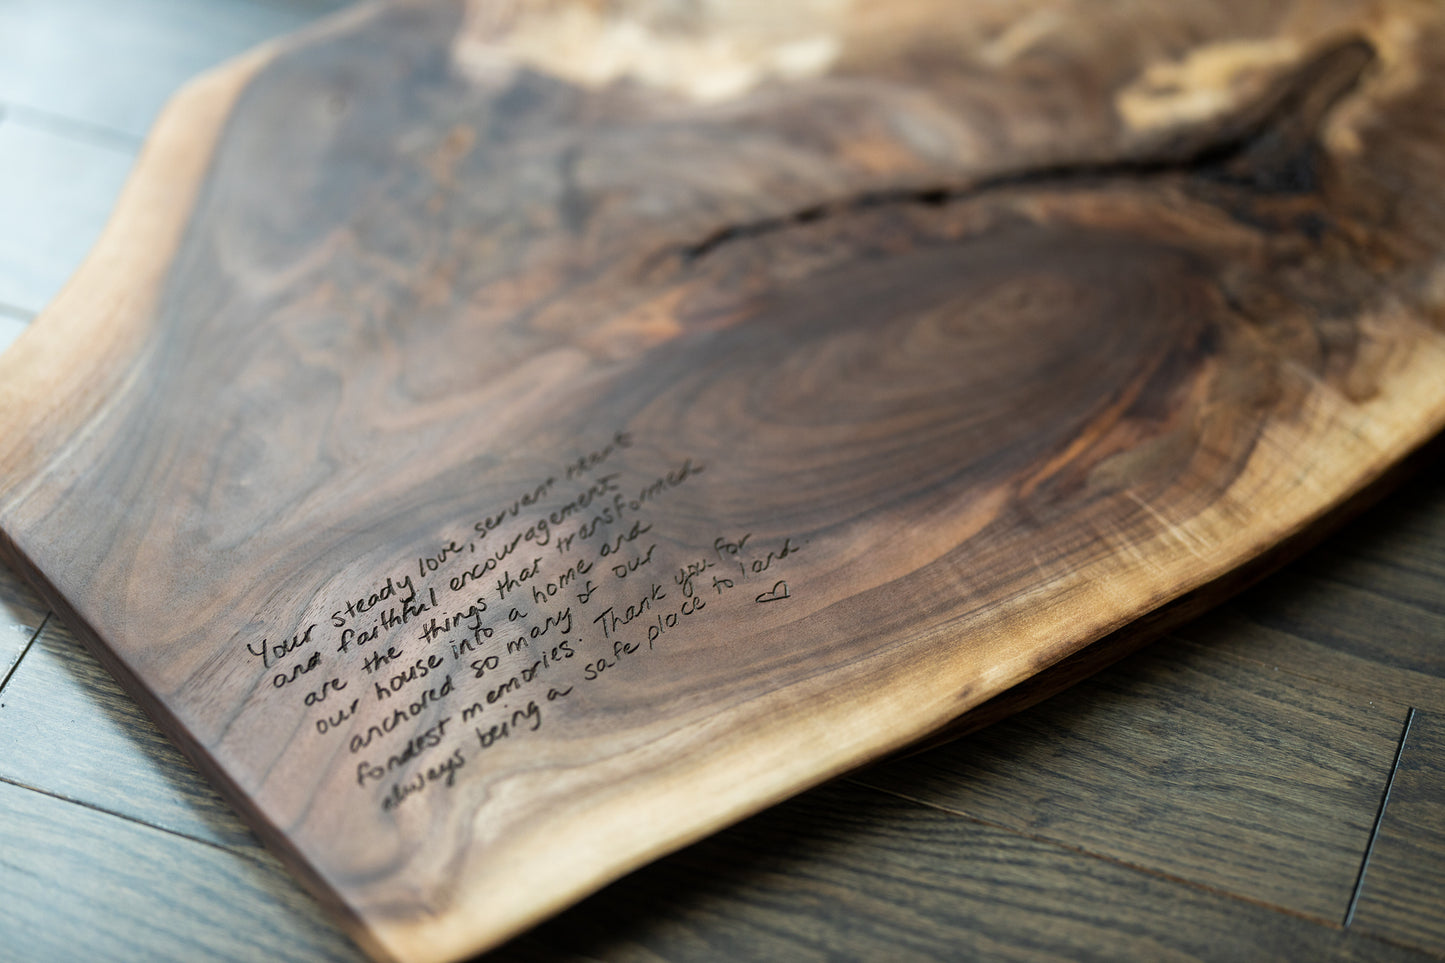 Your steady love, servant heart
and faithful encouragement
are the things that transformed
our house into a home and
anchored so many of our
fondest memories. Thank you for
always being a safe place to land.
♡